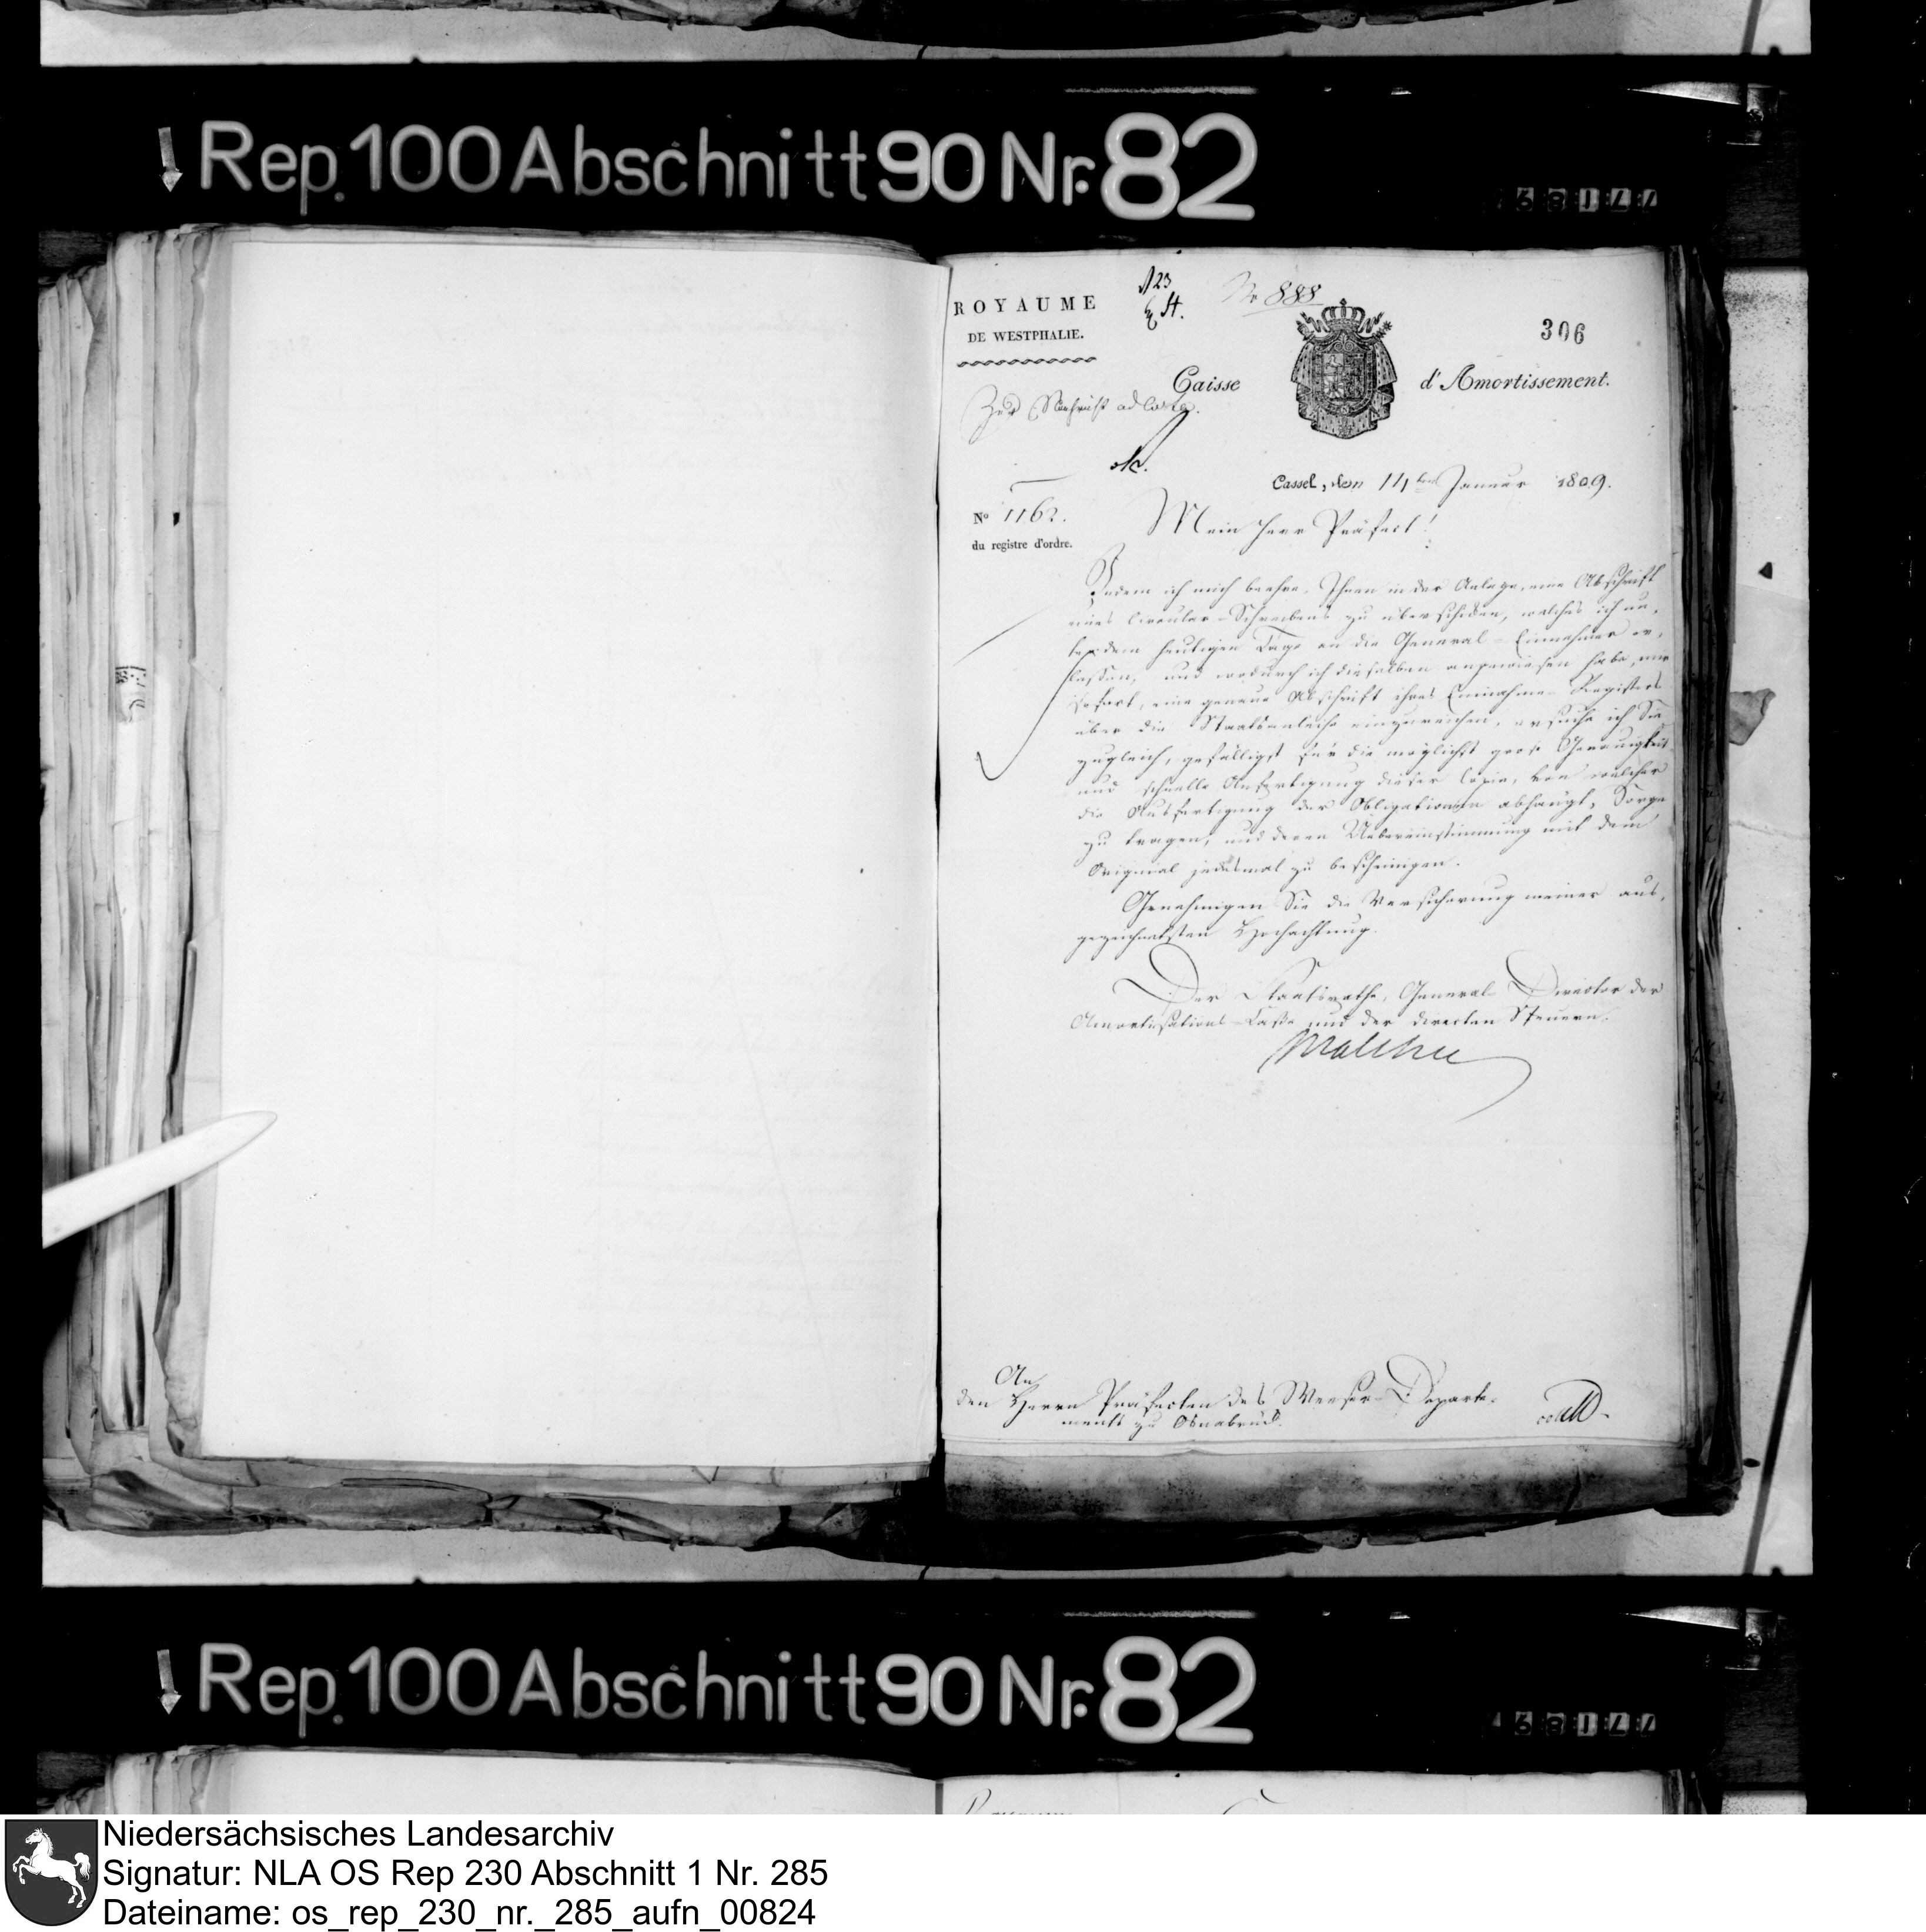 Rep. 100 Abschnitt 90 Nr. 82
ROYAUME
DE WESTPHALIE.
№ 888
306
Caisse d'Amortissement.
Zur Nachricht ad Coll.
Cassel, den 11ten Januar 1809.
No 1162.
du registre d'ordre.
Mein Herr Präfect!
Indem ich mich beehre, Ihnen in der Anlage, eine Abschrift
eines Circular-Schreibens zu überschicken, welches ich un-
ter dem heutigen Tage an die General-Einnehmer er-
lassen, und wodurch ich dieselben angewiesen habe, mir
sofort, eine genaue Abschrift ihres Einnahme-Registers
über die Staatsanleihe einzureichen, ersuche ich Sie
zugleich, gefälligst für die möglichst grose Genauigkeit
und schnelle Anfertigung dieser Copie, von welcher
die Ausfertigung der Obligationen abhängt, Sorge
zu tragen, und deren Uebereinstimmung mit dem
Original jedesmal zu bescheinigen.
Genehmigen Sie die Versicherung meiner aus-
gezeichnetsten Hochachtung.
Der Staatsrath, General-Director der
Amortisations-Casse und der directen Steuern.
Malchus
An
den Herrn Präfecten des Weser-Departe-
ments zu Osnabrück.
Rep. 100 Abschnitt 90 Nr. 82
Niedersächsisches Landesarchiv
Signatur: NLA OS Rep 230 Abschnitt 1 Nr. 285
Dateiname: os_rep_230_nr._285_aufn_00824